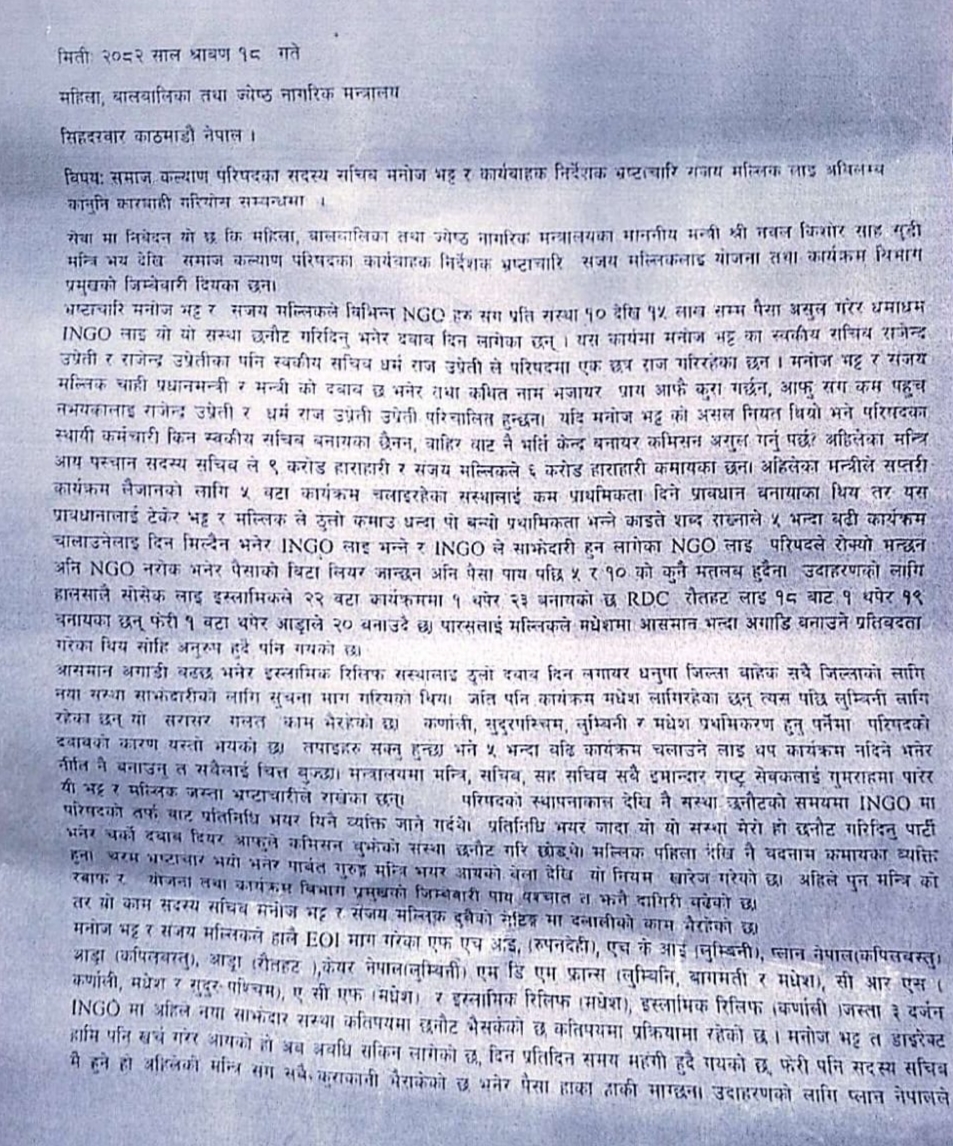 मिती: २०८२ साल श्रावण १८ गते
महिला, बालबालिका तथा ज्येष्ठ नागरिक मन्त्रालय
सिहदरवार काठमाडौ नेपाल ।
विषय: समाज कल्याण परिषदका सदस्य सचिब मनोज भट्ट र कार्यबाहक निर्देशक भ्रष्टाचारि संजय मल्लिक लाइ अबिलम्ब
कानुनि कारवाही गरियोस सम्बन्धमा ।
सेवा मा निबेदन यो छ कि महिला, बालबालिका तथा ज्येष्ठ नागरिक मन्त्रालयका माननीय मन्त्री श्री नवल किशोर साह सुढी
मन्त्रि भय देखि समाज कल्याण परिषदका कार्यबाहक निर्देशक भ्रष्टाचारि संजय मल्लिकलाइ योजना तथा कार्यक्रम बिभाग
प्रमुखको जिम्बेवारी दियका छन।
भ्रष्टाचारि मनोज भट्ट र संजय मल्लिकले विभिन्न NGO हरु संग प्रति संस्था १० देखि १५ लाख सम्म पैसा असुल गरेर धमाधम
INGO लाइ यो यो संस्था छनौट गरिदिनु भनेर दबाब दिन लागेका छन् । यस कार्यमा मनोज भट्ट का स्वकीय सचिब राजेन्द
उप्रेती र राजेन्द उप्रेतीका पनि स्वकीय सचिब धर्म राज उप्रेती ले परिषदमा एक छत्र राज गरिरहेका छन । मनोज भट्ट र संजय
मल्लिक चाही प्रधानमन्त्री र मन्त्री को दबाब छ भनेर तथा कथित नाम भजायर प्राय आफै कुरा गर्छन, आफु संग कम पहुच
नभयकालाइ राजेन्द उप्रेती र धर्म राज उप्रेती उप्रेती परिचालित हुन्छन। यदि मनोज भट्ट को असल नियत थियो भने परिषदका
स्थायी कर्मचारी किन स्वकीय सचिब बनायका छैनन, बाहिर बाट नै भर्ति केन्द बनायर कमिसन असुल गर्नु पर्छ? अहिलेका मन्त्रि
आय पस्चात सदस्य सचिब ले ९ करोड हाराहारी र संजय मल्लिकले ६ करोड हाराहारी कमायका छन। अहिलेका मन्त्रीले सप्तरी
कार्यक्रम लैजानको लागि ५ वटा कार्यक्रम चलाइरहेका संस्थालाई कम प्राथमिकता दिने प्रावधान बनायाका थिय तर यस
प्रावधानालाई टेकेर भट्ट र मल्लिक ले ठुलो कमाउ धन्दा पो बन्यो प्रथामिकता भन्ने काइते शब्द राख्नाले ५ भन्दा बढी कार्यक्रम
चालाउनेलाइ दिन मिल्दैन भनेर INGO लाइ भन्ने र INGO ले साझेदारी हुन लागेका NGO लाइ परिषदले रोक्यो भन्छन
अनि NGO नरोक भनेर पैसाको बिटा लियर जान्छन अनि पैसा पाय पछि ५ र १० को कुनै मतलब हुदैना उदाहरणको लागि
हालसालै सोसेक लाइ इस्लामिकले २२ वटा कार्यक्रममा १ थपेर २३ बनायको छ RDC रौतहट लाइ १८ बाट १ थपेर १९
बनायका छन् फेरी १ वटा थपेर आड्राले २० बनाउदै छ। पारसलाई मल्लिकले मधेशमा आसमान भन्दा अगाडि बनाउने प्रतिबदता
गरेका थिय सोहि अनुरुप हुदै पनि गयको छ।
आसमान अगाडी बढछ भनेर इस्लामिक रिलिफ संस्थालाइ ठुलो दबाब दिन लगायर धनुषा जिल्ला बाहेक सबै जिल्लाको लागि
नया संस्था साझेदारीको लागि सुचना माग गरियको थिय। जति पनि कार्यक्रम मधेश लागिरहेका छन् त्यस पछि लुम्बिनी लागि
रहेका छन् यो सरासर गलत काम भैरहेको छ। कर्णाली, सुदुरपश्चिम, लुम्बिनी र मधेश प्रथमिकरण हुनु पर्नेमा परिषदको
दबाबको कारण यस्तो भयको छ। तपाइहरु सक्नु हुन्छ भने ५ भन्दा बढि कार्यक्रम चलाउने लाइ थप कार्यक्रम नदिने भनेर
नीति नै बनाउनु त सबैलाई चित्त बुझ्छ। मन्त्रालयमा मन्त्रि, सचिब, सह सचिब सबै इमान्दार राष्ट्र सेबकलाई गुमराहमा पारेर
यी भट्ट र मल्लिक जस्ता भ्रष्टाचारीले राखेका छन्। परिषदको स्थापनाकाल देखि नै संस्था छनौटको समयमा INGO मा
परिषदको तर्फ बाट प्रतिनिधि भयर यिनै व्यक्ति जाने गर्दथे। प्रतिनिधि भयर जादा यो यो संस्था मेरो हो छनौट गरिदिनु पार्टी
भनेर चर्को दबाब दियर आफुले कमिसन बुझेको संस्था छनौट गरि छोड्थे। मल्लिक पहिला देखि नै बदनाम कमायका व्यक्ति
हुन। चरम भ्रष्टाचार भयो भनेर पार्वत गुरुङ्ग मन्त्रि भयर आयको बेला देखि यो नियम खारेज गरेको छ। अहिले पुन मन्त्रि को
रवाफ र योजना तथा कार्यक्रम बिभाग प्रमुखको जिम्बेवारी पाय पश्चात त झनै दागिरी बढेको छ।
तर यो काम सदस्य सचिब मनोज भट्ट र संजय मल्लिक दुबैको सेटिङ्ग मा दलालीको काम भैरहेको छ।
मनोज भट्ट र संजय मल्लिकले हालै EOI माग गरेका एफ एच आइ, (रुपनदेही), एच के आई (लुम्बिनी), प्लान नेपाल(कपिलबस्तु)
आड्रा (कपिलबस्तु), आड्रा (रौतहट ),केयर नेपाल(लुम्बिनी) एम डि एम फ्रान्स (लुम्बिनि, बागमती र मधेश), सी आर एस (
कर्णाली, मधेश र सुदुर पश्चिम), ए सी एफ (मधेश) र इस्लामिक रिलिफ (मधेश), इस्लामिक रिलिफ (कर्णाली )जस्ता ३ दर्जन
INGO मा अहिल नया साझेदार संस्था कतिपयमा छनौट भैसकेको छ कतिपयमा प्रक्रियामा रहेको छ । मनोज भट्ट त डाइरेक्ट
हामि पनि खर्च गरेर आयको हो अब अवधि सकिन लागेको छ, दिन प्रतिदिन समय महंगी हुदै गयको छ, फेरी पनि सदस्य सचिब
मै हुने हो अहिलेको मन्त्रि संग सबै कुराकानी भैसकेको छ भनेर पैसा हाका हाकी माग्छन। उदाहरणको लागि प्लान नेपालले